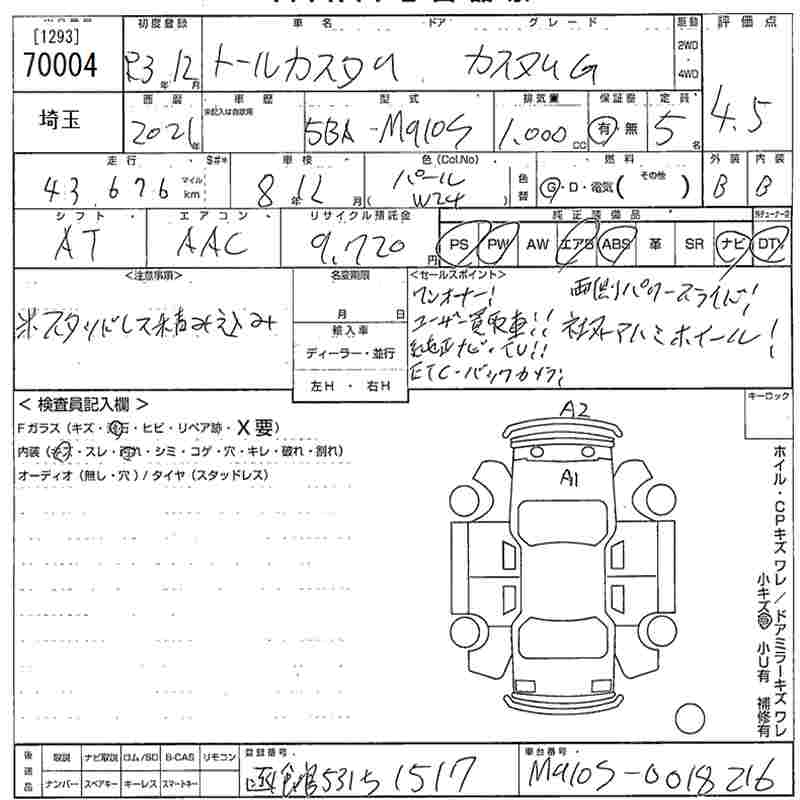 [1293]
70004
初度登録 車名 ドア グレード 駆動 評価点
R3年12月 トールカスタム カスタムG 2WD 4WD 4.5
埼玉
西暦 車歴 型式 排気量 保証書 定員
2021年 未記入は自家用 5BA-M910S 1,000cc 有・無 5名
走行 S#* 車検 色(Col.No) 燃料 外装 内装
43,676 マイル km 8年12月 パール (W24) 色替 G・D・電気( その他 ) B B
シフト エアコン リサイクル預託金 純正装備品
AT AAC 9,720円 PS PW AW エアB ABS 革 SR ナビ DTV
<注意事項> 名変期限 <セールスポイント>
※スタッドレス積み込み
月 日
輸入車
ディーラー・並行
左H・右H
ワンオーナー! 両側パワースライド!
ユーザー買取車!! 社外アルミホイール!
純正ナビ・TV!!
ETC・バックカメラ!
<検査員記入欄> キーロック
Fガラス(キズ・飛石・ヒビ・リペア跡・X要)
内装(キズ・スレ・汚れ・シミ・コゲ・穴・キレ・破れ・割れ)
オーディオ(無し・穴)/タイヤ(スタッドレス)
A2
A1
ホイル・CPキズ ワレ/ドアミラーキズ ワレ
小キズ有 小U有 補修有
後送品 取説 ナビ取説 ロム/SD B-CAS リモコン 登録番号 車台番号
ナンバー スペアキー キーレス スマートキー 函館531ち1517 M910S-0018216